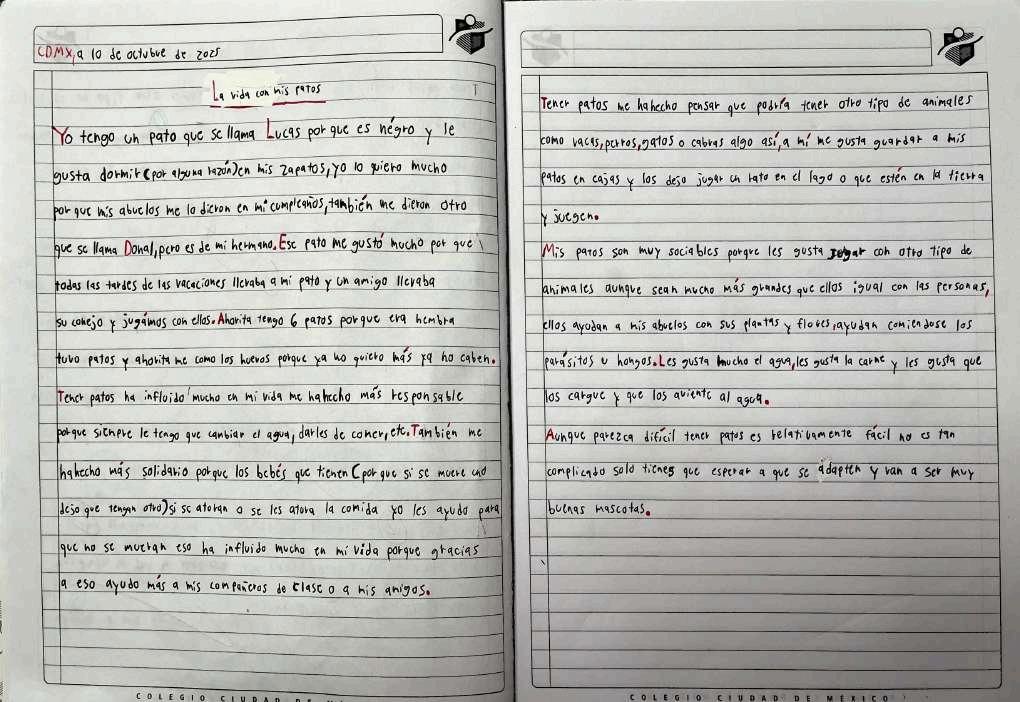 CDMX, a 10 de octubre de 2025
La vida con mis patos
Yo tengo un pato que se llama Lucas por que es négro y le
gusta dormir (por alguna razón) en mis zapatos, yo lo quiero mucho
por que mis abuelos me lo dieron en mi cumpleaños, también me dieron otro
que se llama Donal, pero es de mi hermano. Ese pato me gustó mucho por que
todas las tardes de las vacaciones llevaba a mi pato y un amigo llevaba
su conejo y jugámos con ellos. Ahorita tengo 6 patos porque era hembra
tubo patos y ahorita me como los huevos porque ya no quiero más ya no caben.
Tener patos ha influido mucho en mi vida me hahecho más responsable
porque siempre le tengo que cambiar el agua, darles de comer, etc. También me
hahecho más solidario porque los bebés que tienen (por que si se muere uno
dejo que tengan otro) si se atoran o se les atora la comida yo les ayudo para
que no se mueran eso ha influido mucho en mi vida porque gracias
a eso ayudo más a mis compañeros de clase o a mis amigos.
COLEGIO CIUDAD DE
Tener patos me hahecho pensar que podría tener otro tipo de animales
como vacas, perros, gatos o cabras algo así, a mí me gusta guardar a mis
patos en cajas y los dejo jugar un rato en el lago o que estén en la tierra
y juegen.
Mis patos son muy sociables porque les gusta jugar con otro tipo de
animales aunque sean mucho más grandes que ellos igual con las personas,
ellos ayudan a mis abuelos con sus plantas y flores, ayudan comiendose los
parásitos u hongos. Les gusta mucho el agua, les gusta la carne y les gusta que
los cargue y que los aviente al agua.
Aunque parezca difícil tener patos es relativamente fácil no es tan
complicado solo tienes que esperar a que se adapten y van a ser muy
buenas mascotas.
COLEGIO CIUDAD DE MÉXICO